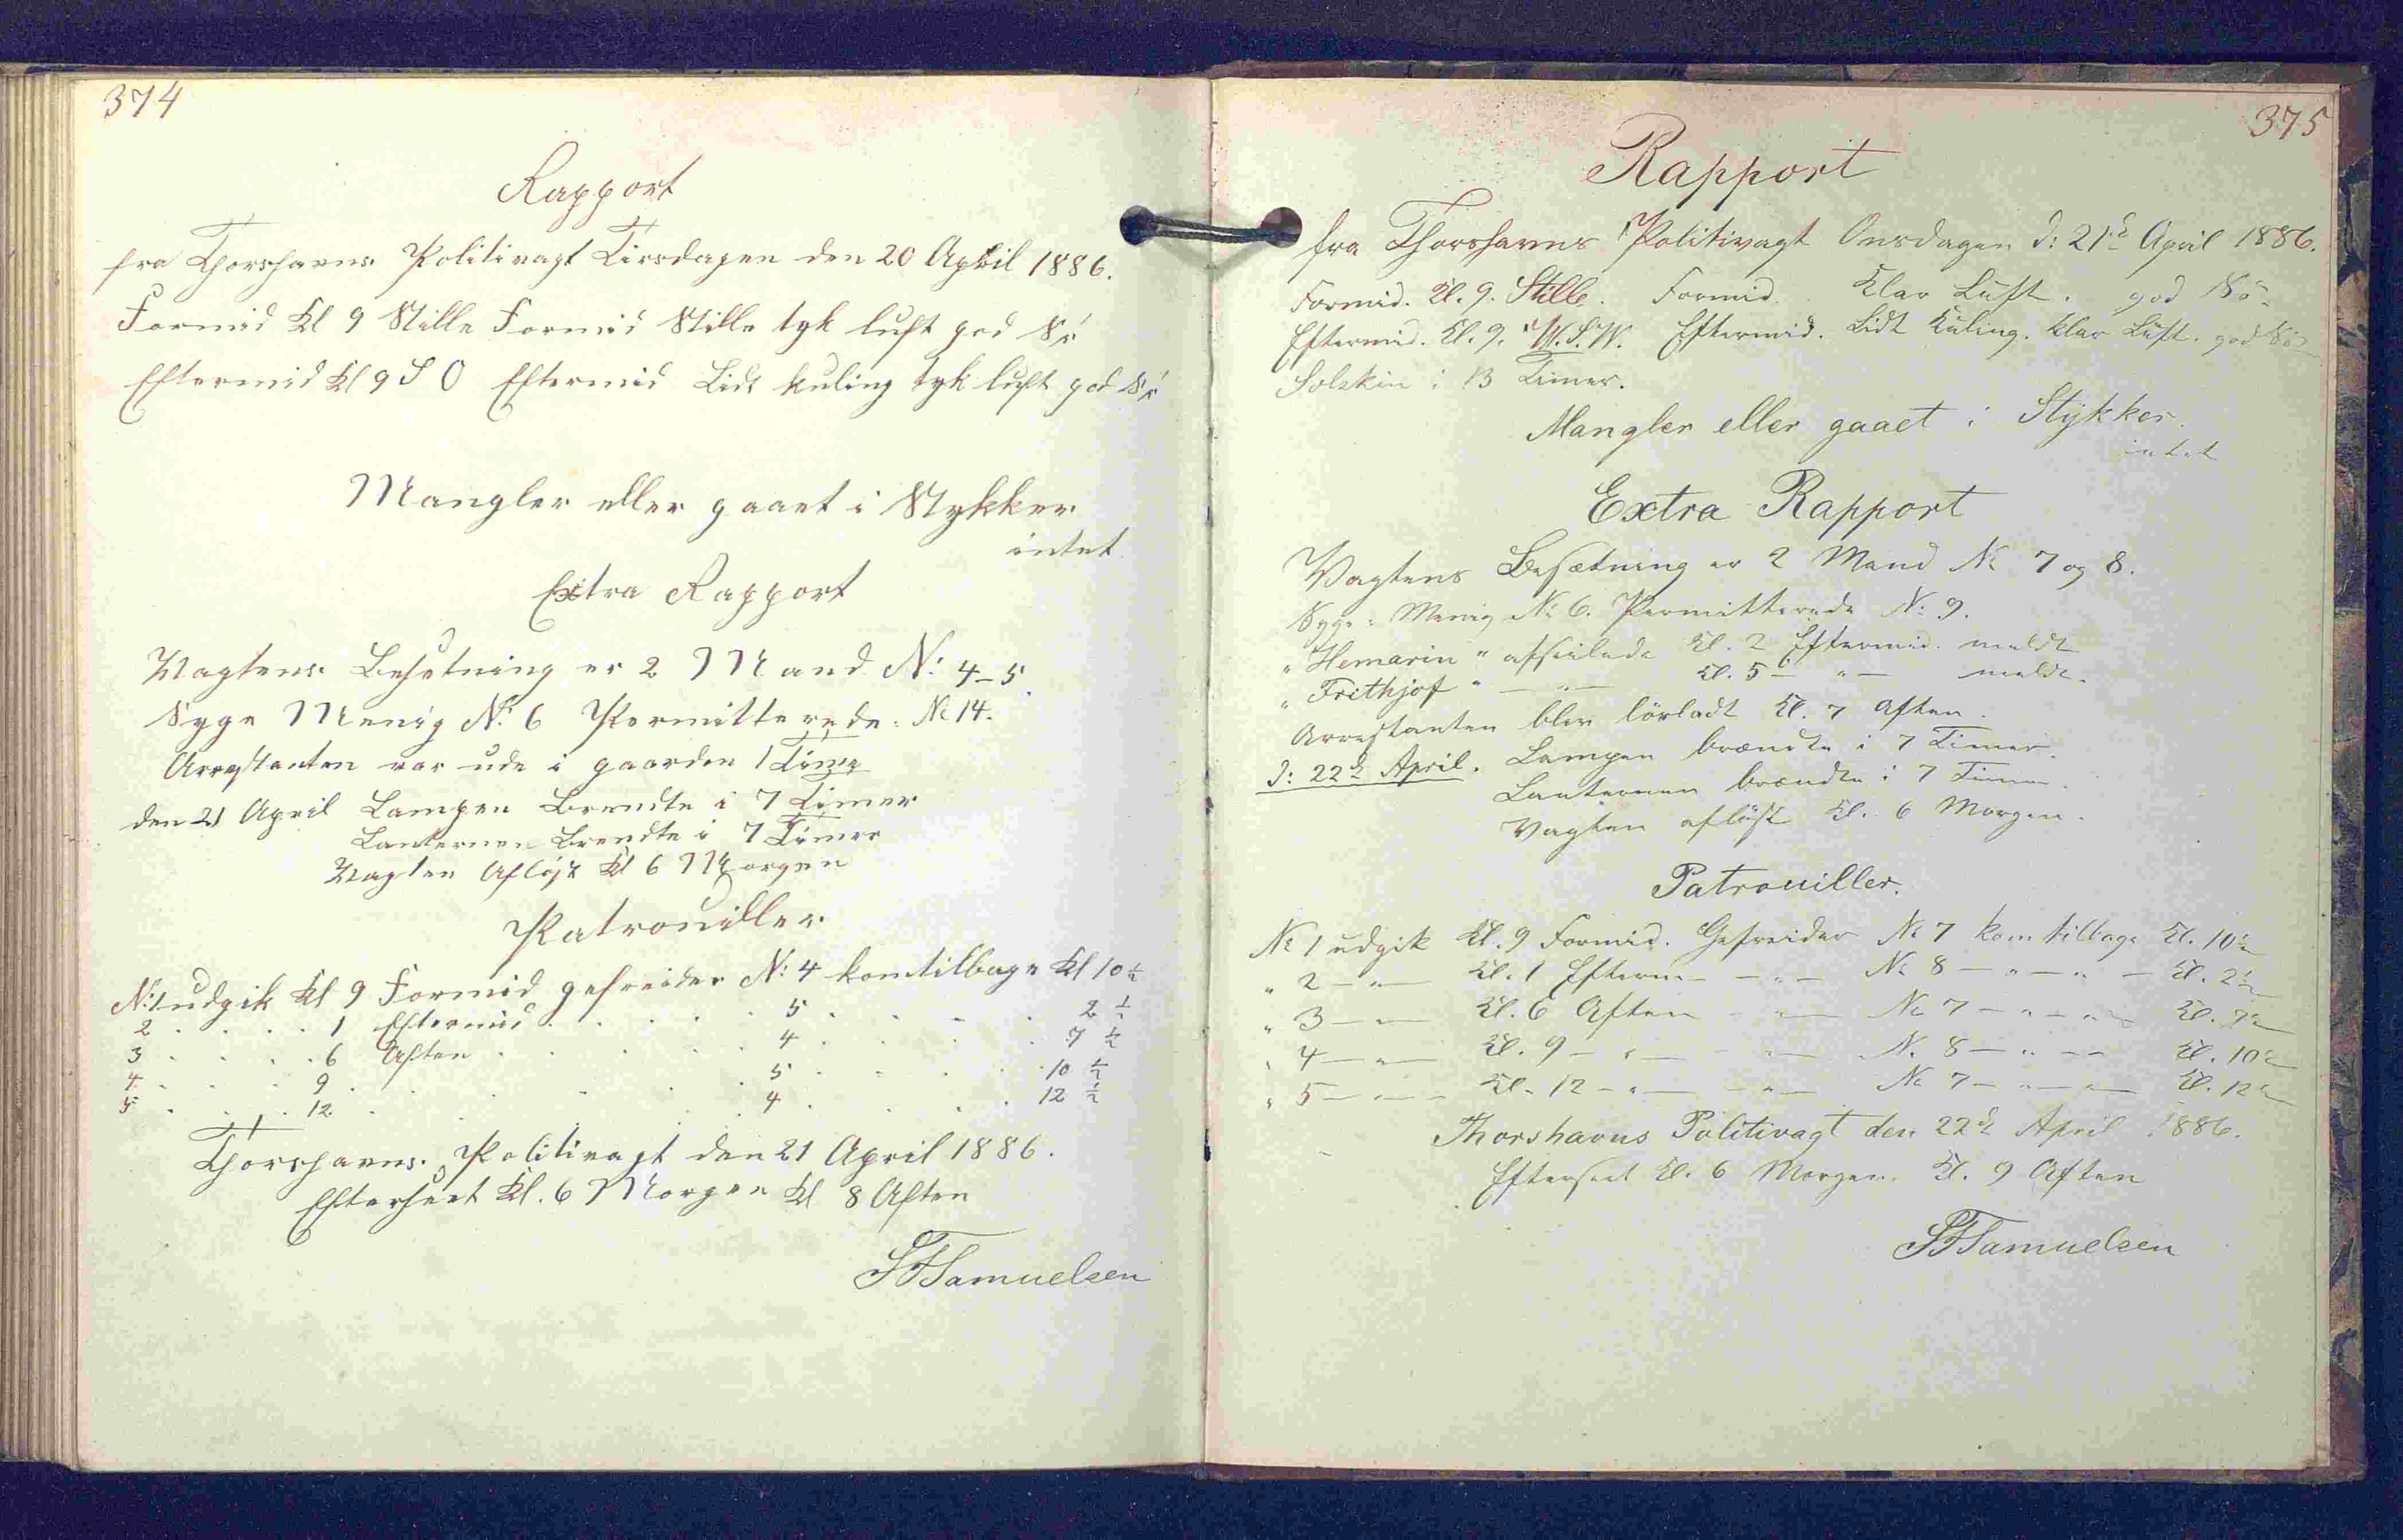 374
Rapport
fra Thorshavns Politivagt Tirsdagen den 20 April 1886.
Formid Kl 9 Stille Formid Stille tyk luft god Sö
Eftermid Kl 9 S O Eftermid Lidt kuling tyk luft god Sö
Mangler eller gaaet i Stykker
intet
Extra Rapport
Vagtens Besetning er 2 Mand N: 4-5.
Syge Menig N: 6 Permitterede: No 14.
Arrestanten var ude i gaarden 1 Time
den 21 April Lampen Brendte i 7 Timer
Lanternen Brendte i 7 Timer
Vagten Aflöst Kl 6 Morgen
Patrouiller
N: 1 udgik Kl 9 Formid gefreider N: 4 kom tilbage Kl 10 ½
2 . . . . 1 Eftermid . . . . . 5 . . . . 2 ½
3 . . . . 6 Aften . . . . . 4 . . . . 7 ½
4 . . . . 9 . . . . . 5 . . . . 10 ½
5 . . . . 12 . . . . . 4 . . . . 12 ½
Thorshavns Politivagt den 21 April 1886.
Efterseet Kl. 6 Morgen Kl 8 Aften
Samuelsen
375
Rapport
fra Thorshavns Politivagt Onsdagen d: 21d April 1886.
Formid. Kl. 9. Stille. Formid. Klar Luft. god Sö.
Eftermid. Kl. 9. W.S.W. Eftermid. Lidt Kuling. klar Luft. god Sö
Solskin i 13 Timer.
Mangler eller gaaet i Stykker.
intet
Extra Rapport
Vagtens Besætning er 2 Mand No 7 og 8.
Syge: Menig No 6. Permitterede No 9.
"Hemarin" afseilede Kl. 2 Eftermid. meldt
"Frithjof" — " — Kl. 5 — " — meldt.
Arrestanten blev lösladt Kl. 7 Aften.
d: 22d April. Lampen brændte i 7 Timer.
Lanternen brændte i 7 Timer.
Vagten aflöst Kl. 6 Morgen.
Patrouiller.
No 1 udgik Kl. 9 Formid. Gefreider No 7 kom tilbage Kl. 10½
" 2 — " — Kl. 1 Efterm — " — No 8 — " — " — Kl. 2½
" 3 — " — Kl. 6 Aften — " — No 7 — " — " — Kl. 7½
" 4 — " — Kl. 9 — " — — " — No 8 — " — " — Kl. 10½
" 5 — " — Kl. 12 — " — — " — No 7 — " — " — Kl. 12½
Thorshavns Politivagt den 22d April 1886.
Efterseet Kl. 6 Morgen. Kl. 9 Aften
Samuelsen